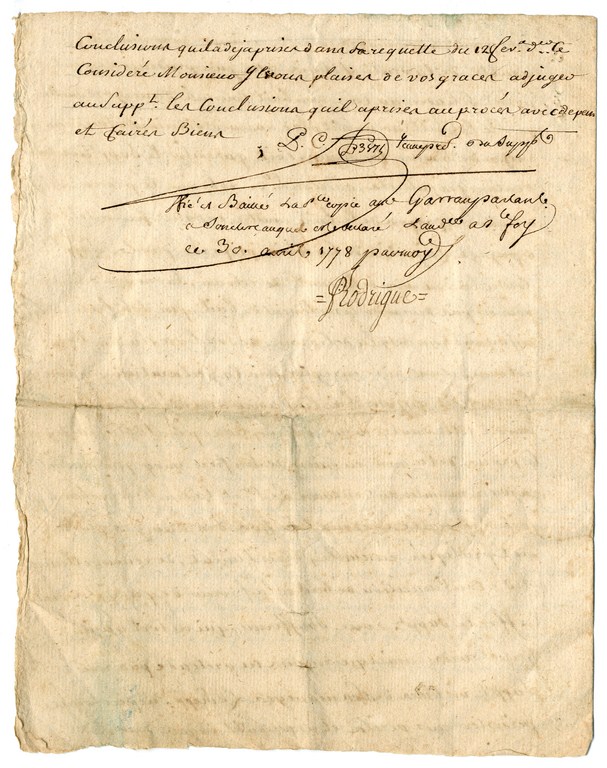 Conclusions quil a deja prises dans sa requette du 12 fev.r d.er Ce
Consideré Monsieur Il vous plaise de vos graces adjuger
au Supp.t les Conclusions quil a prises au procés avec depens
et faires Bien
P. C.
du Supp.t
et Baillé la p.te copie a Garrau parlant
a son clerc auquel est declaré a S.te foy
ce 30. avril 1778 par moy
=Rodrigue=